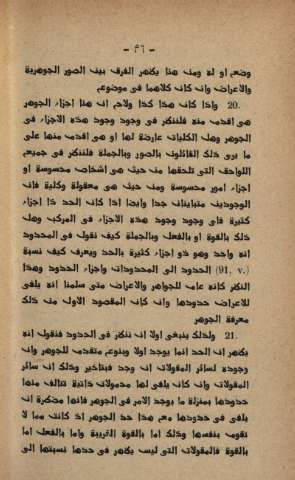 – ٤٦ –
وضع او له ومن هنا يظهر الفرق بين الصور الجوهرية
والاعراض وان كان كلاهما فى موضوع
20. واذا كان هذا كذا ولاح ان هنا اجزاء الجوهر
هى اقدم منه فلننظر فى وجود وجود هذه الاجزاء فى
الجوهر وهل الكليات عارضة لها او هى اقدم منها على
ما يرى ذلك القائلون بالصور وبالجملة فلننظر فى جميع
اللواحق التى تلحقها من حيث هى اشخاص محسوسة او
اجزاء امور محسوسة ومن حيث هى معقولة وكلية فان
الوجودين متباينان جدا وايضا اذا كان الحد ذا اجزاء
كثيرة فاى وجود وجود هذه الاجزاء فى المركب وهل
ذلك بالقوة او بالفعل وبالجملة كيف نقول فى المحدود
انه واحد وهو ذو اجزاء كثيرة بالحد ويعرف كيف نسبة
(91, v.) الحدود الى المحدودات واجزاء الحدود وهذا
النظر كانه عام للجواهر والاعراض متى سلمنا انه يلفى
للاعراض حدودها وان كان المقصود الاول من ذلك
معرفة الجوهر
21. ولذلك ينبغى اولا ان ننظر فى الحدود فنقول انه
يظهر ان الحد انما يوجد اولا وبنوع متقدم للجوهر وان
وجوده لسائر المقولات ان وجد فبتاخير وذلك ان سائر
المقولات وان كان يلفى لها محمولات ذاتية تتالف منها
حدودها بمنزلة ما يوجد الامر فى الجوهر فانها مضطرة ان
يلفى فى حدودها مع هذا حد الجوهر اذ كانت مما لا
تقوم بنفسها وذلك اما بالقوة القريبة واما بالفعل اما
بالقوة فالمقولات التى ليس يظهر فى حدها نسبتها الى